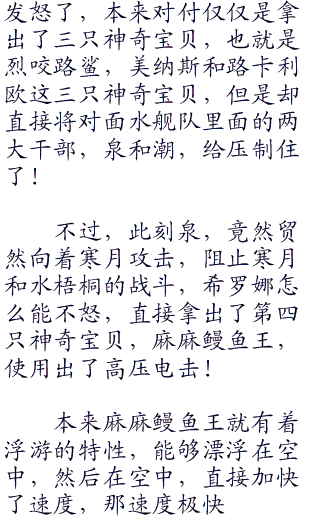 发怒了，本来对付仅仅是拿
出了三只神奇宝贝，也就是
烈咬路鲨，美纳斯和路卡利
欧这三只神奇宝贝，但是却
直接将对面水舰队里面的两
大干部，泉和潮，给压制住
了！
不过，此刻泉，竟然贸
然向着寒月攻击，阻止寒月
和水梧桐的战斗，希罗娜怎
么能不怒，直接拿出了第四
只神奇宝贝，麻麻鳗鱼王，
使用出了高压电击！
本来麻麻鳗鱼王就有着
浮游的特性，能够漂浮在空
中，然后在空中，直接加快
了速度，那速度极快